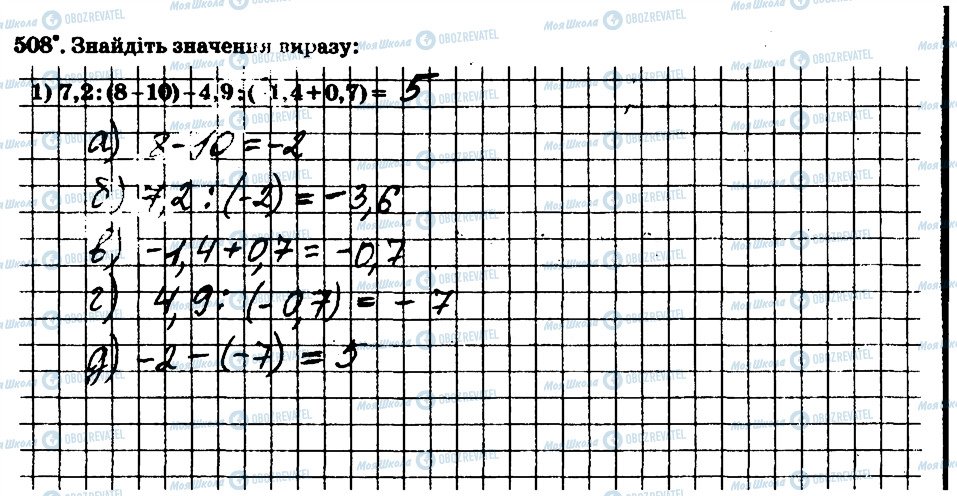 508°. Знайдіть значення виразу:
1) 7,2 : (8 – 10) – 4,9 : ( 1,4 + 0,7) = 5
а) 8 - 10 = -2
б) 7,2 : (-2) = -3,6
в) -1,4 + 0,7 = -0,7
г) 4,9 : (-0,7) = -7
д) -2 - (-7) = 5